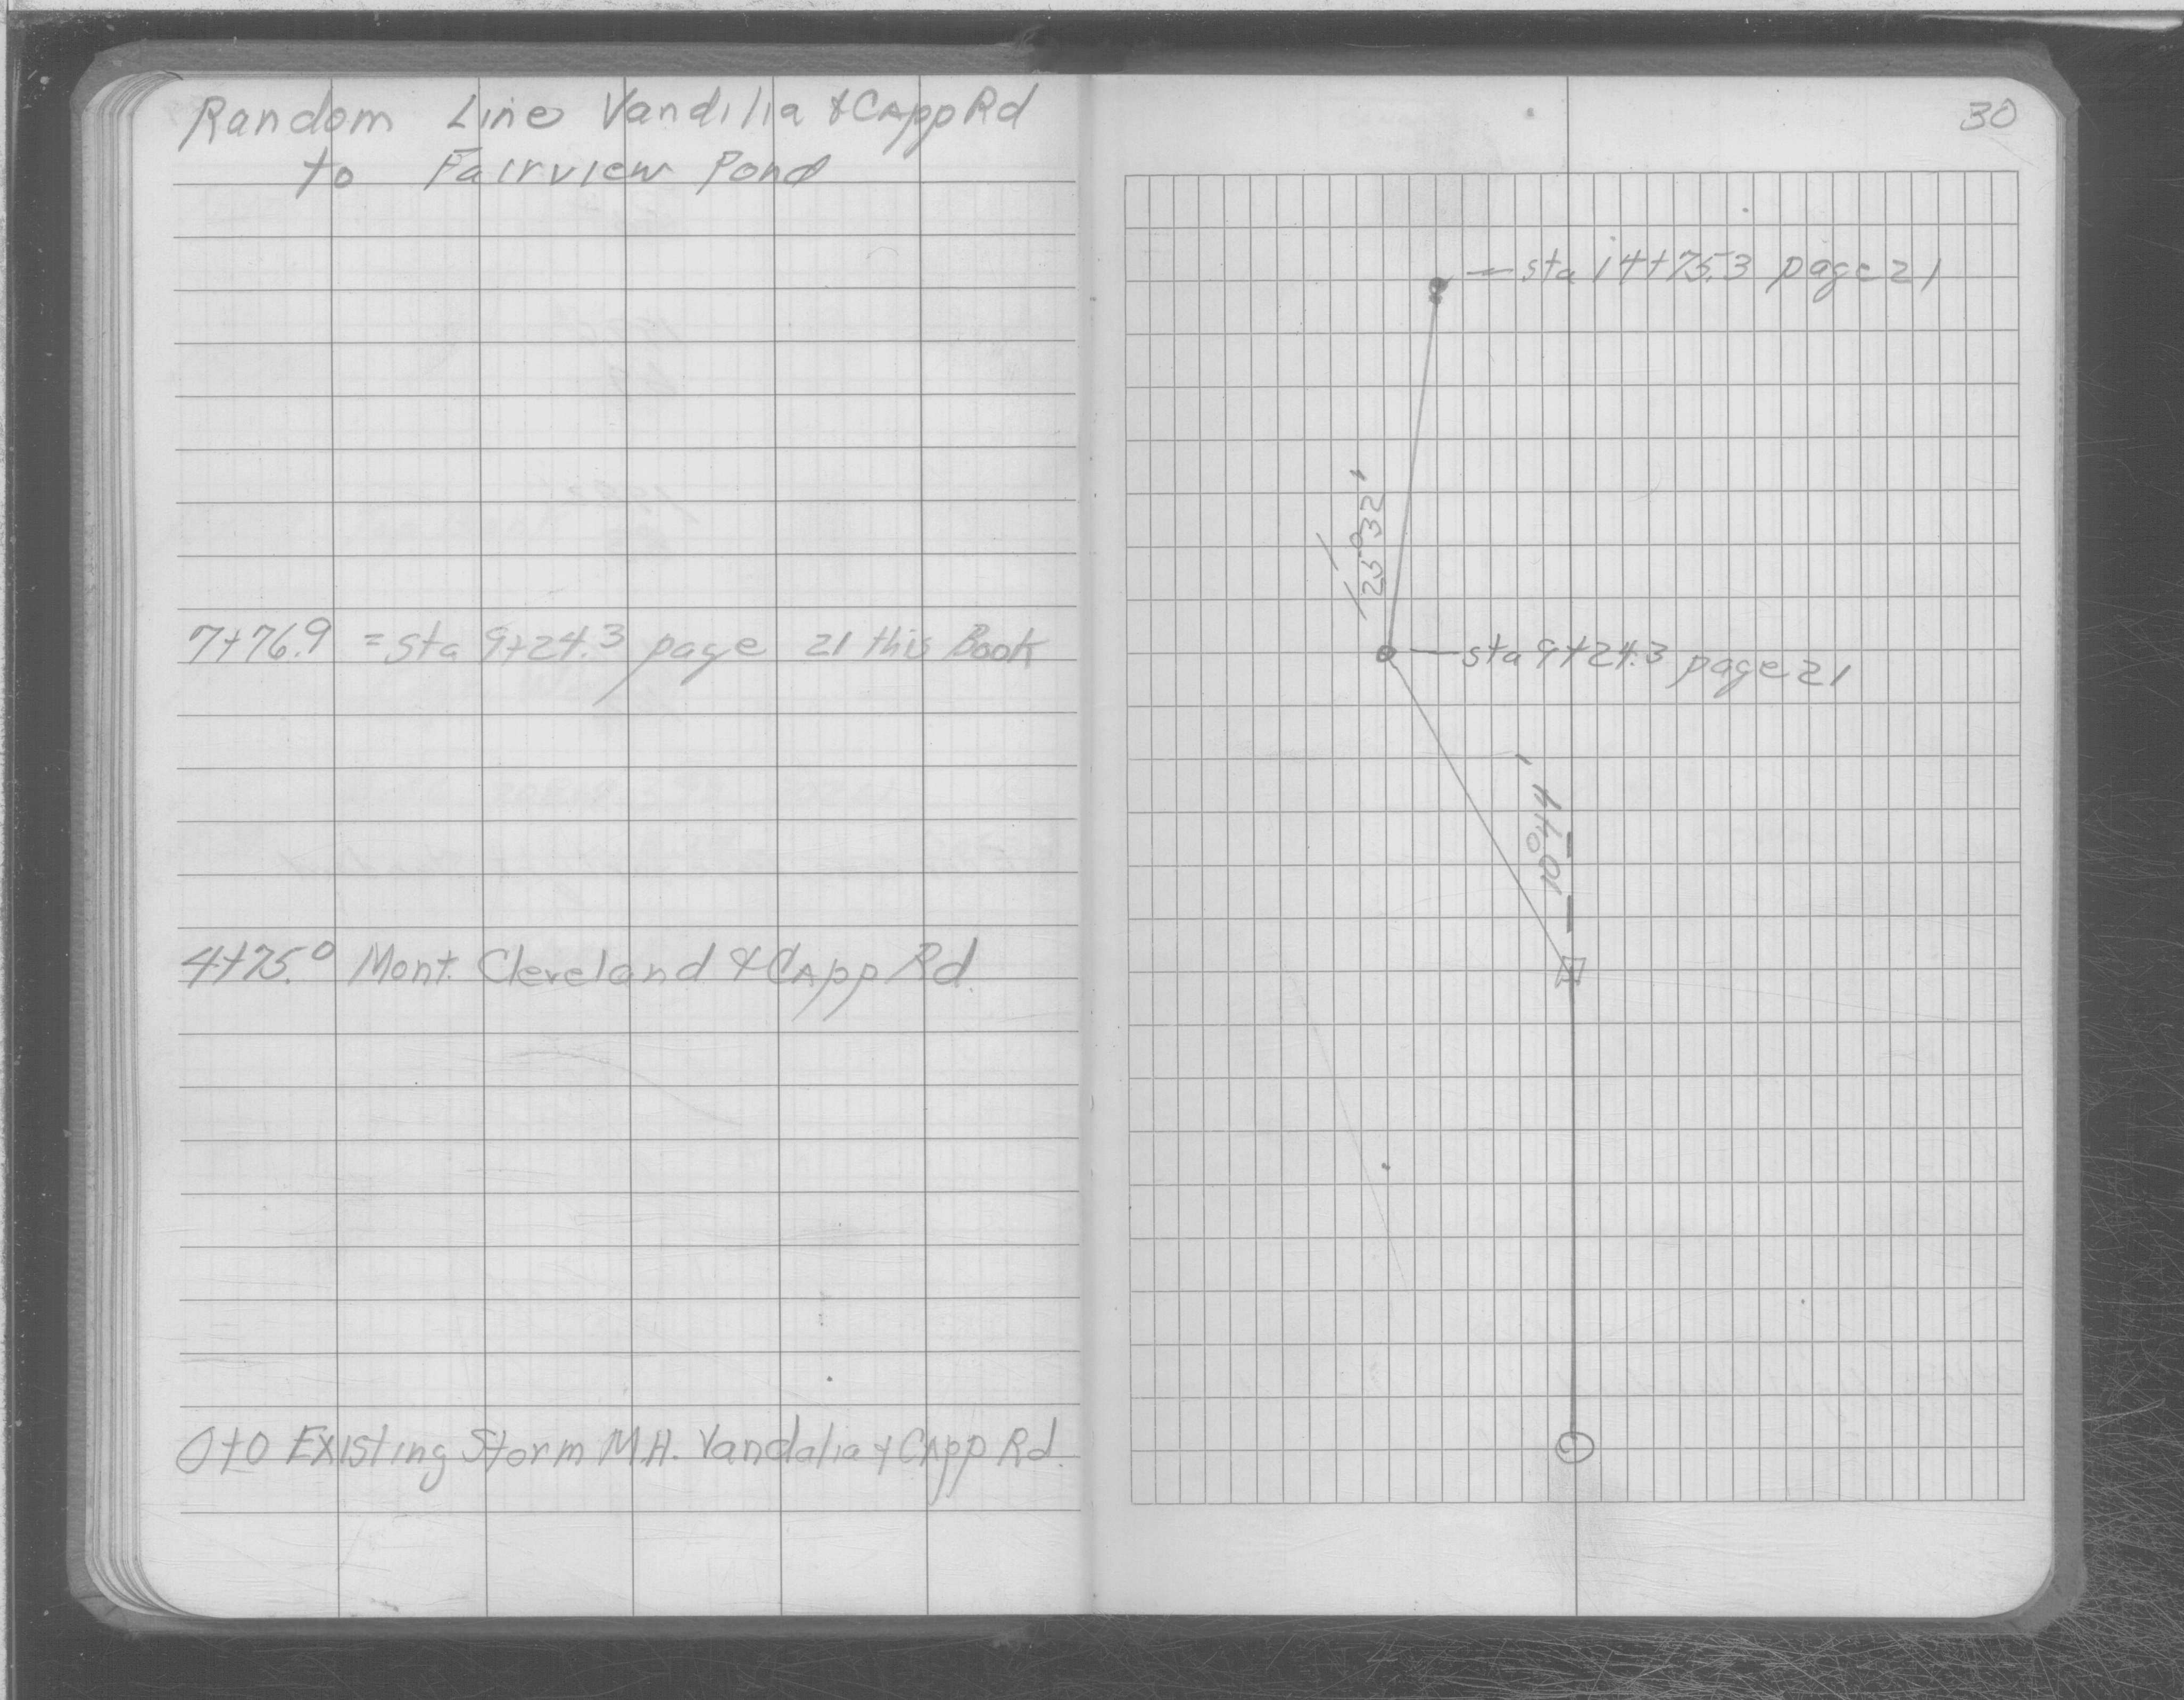 Random Line Vandilia & CApp Rd
to Fairview Pond
7+76.9 = sta 9+24.3 page 21 this Book
4+75.0 Mont. Cleveland & CApp Rd.
0+0 Existing Storm M.H. Vandalia & CApp Rd.
30
sta 14+75.3 page 21
25°32'
sta 9+24.3 page 21
10°44'